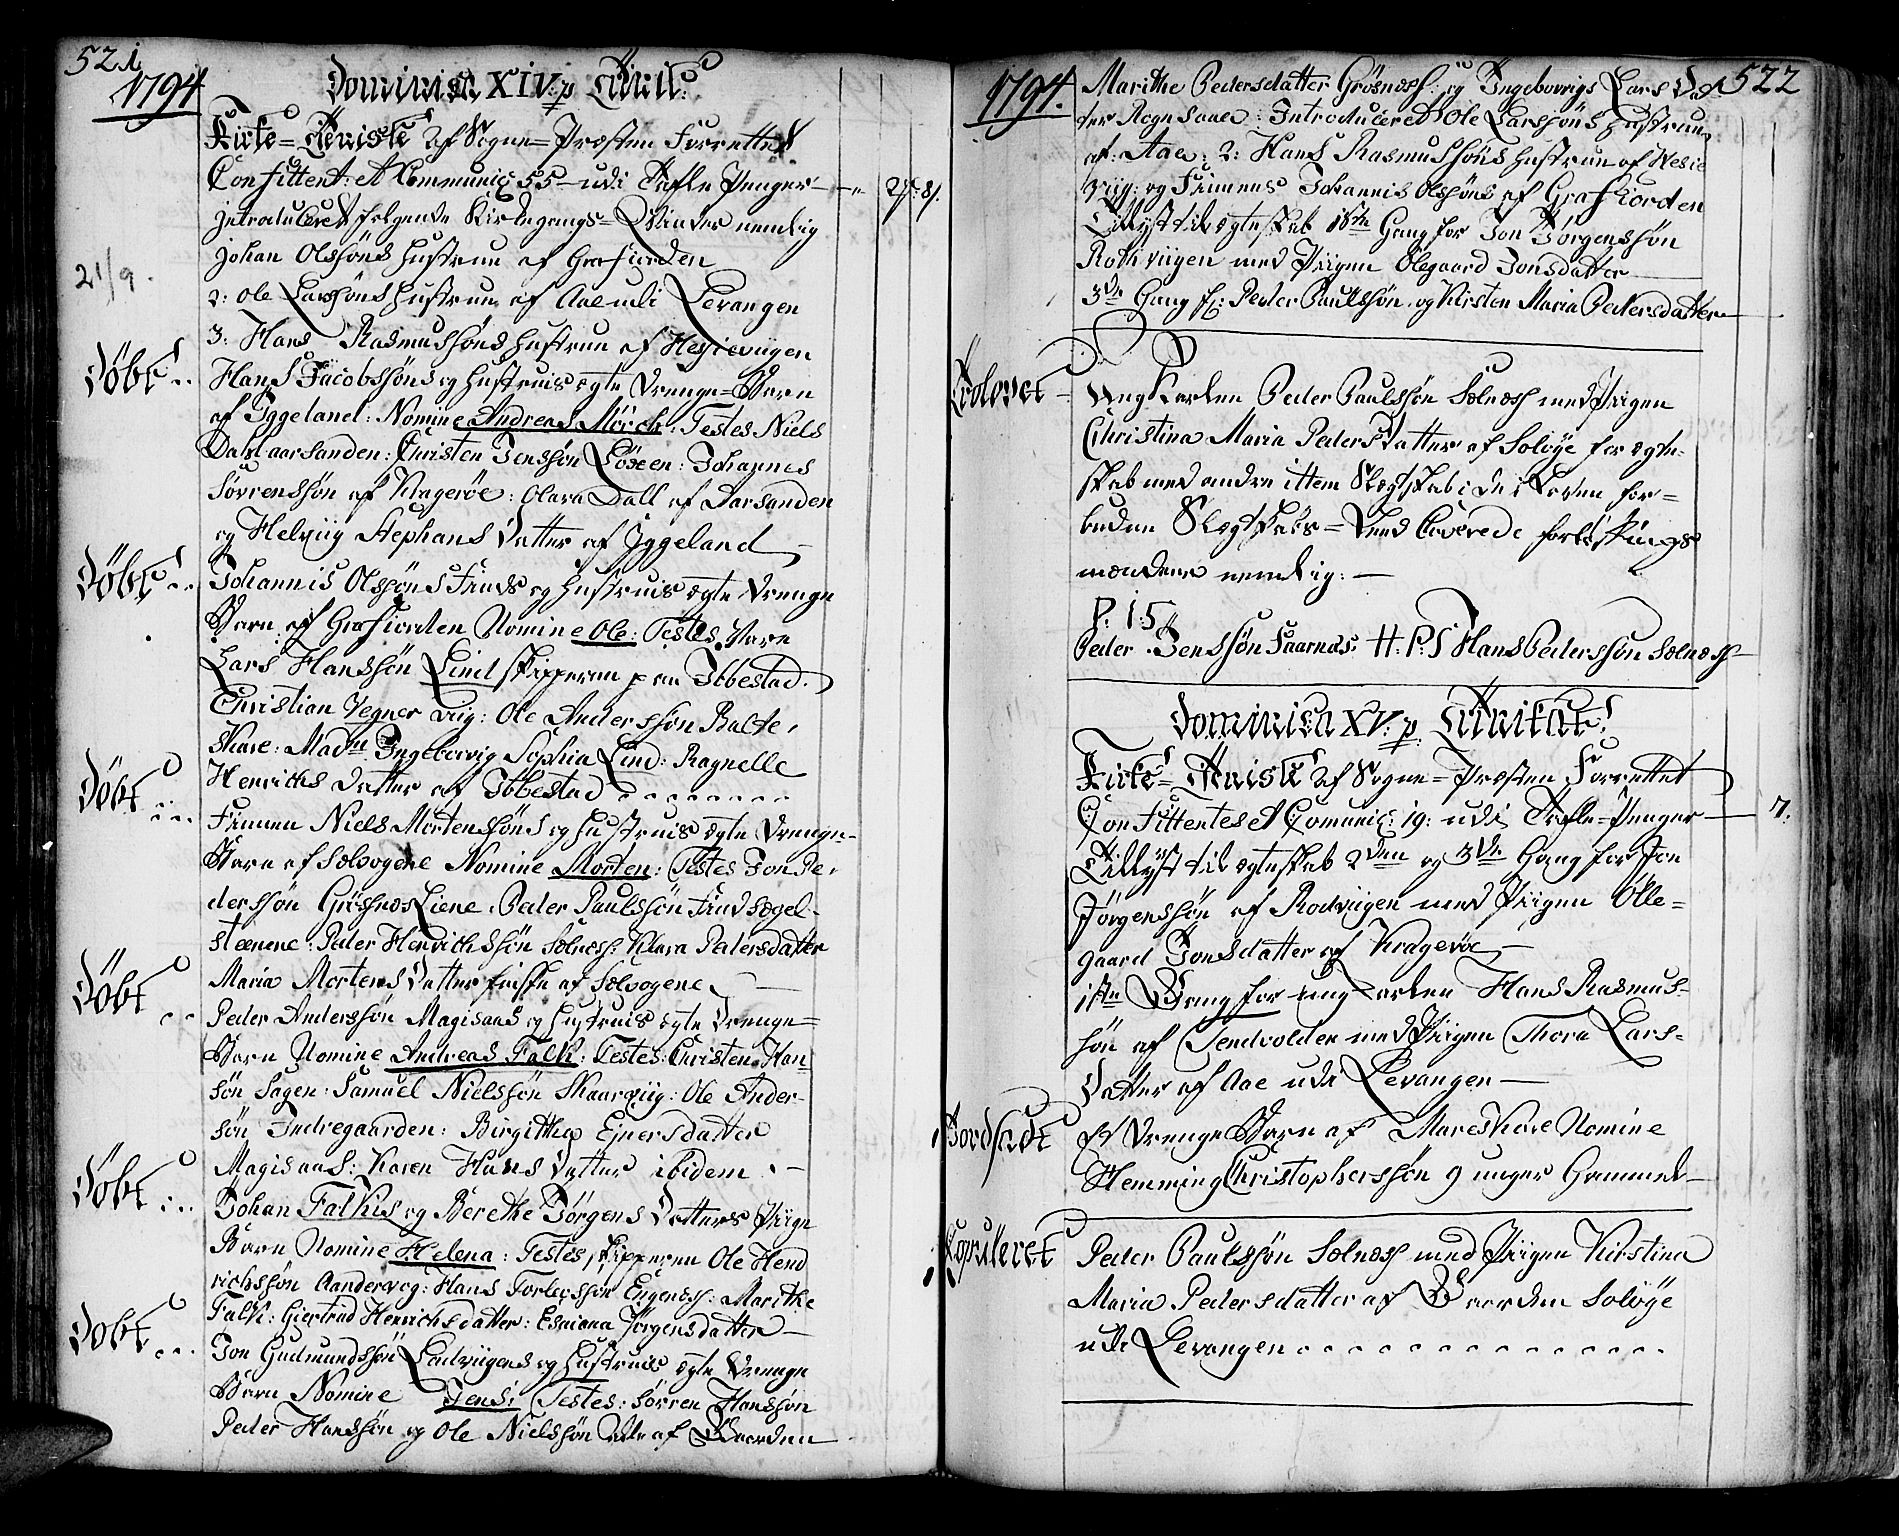 521
1794
Dominica XIV: p Trinit:
Kirke=Tieniste af Sogne=Præsten Forrettet
Confittent: et Communic: 55 – udi Tafle Penger –
Introduceret følgende Kirkegangs=Qvinder nemlig
Johan Olssøns Hustrue af Grafiorden
21/9.
2: Ole Larssøns Hustrue af Aae udi Levangen
3: Hans Rasmussøns Hustrue af Hesieviigen
Døbt
Hans Jacobssøns og Hustrues ægte Drenge=Barn
af Iggeland: Nomine Andreas Mörch: Testes Niels
Dahl aarsanden: Christen Jenssøn: Johannes
Sörrenssøn af Kragerøe: Olava Dall af Aarsanden
og Helviig Stephans Datter af Iggeland –
Døbt
Johannis Olssøns Finds og Hustrues ægte Drenge
Barn af Grafiorden Nomine Ole: Testes Vare
Lars Hanssøn Lind Skipperen paa Ibbestad.
Christian Vegner viig: Ole Anderssøn Balte,
Skare: Madm Ingeborrig Sophia Lind: Ragnelle
Henrichs Datter af Ibbestad
Døbt
Finnen Niels Mortenssøns og Hustrues ægte Drenge=
Barn af Sælvogene Nomine Morten: Testes Jon Pe,
derssøn Grøsnæs Liene. Peder Paulssøn Find
steenene: Peder Henrichssøn Sælnæss: Klara Pedersdatter
Døbt
Maria Mortens Datter af Sælvogene
Peder Anderssøn Magisaas og Hustrues ægte Drenge=
Barn Nomine Andreas Falk: Testes: Christen Han=
søn Sagen: Samuel Nielssøn Skaarviig: Ole Ander=
søn Indregaarden: Birgitha Ejnersdatter
Magisaas: Karen Hans Datter ibidem. –
Døbt
Johan Falkis og Berethe Jörgens Datters Piige
Barn Nomine Helena: Testes, Skipperen Ole Hend
richssøn Aandervog: Hans Engenæss: Marithe
Falk: Giertrud Henrichsdatter: Jörgensdatter –
Døbt
Jon Gudmundssøn og Hustrues ægte Drenge
Barn Nomine Jens: Testes: Sörren Hanssøn
Peder Hanssøn og Ole Nielssøn alle af Gaarden
522
1794.
Marithe Pedersdatter Grøsnæss: og Ingeborrigs Lars Dat
ter Rognsaae: Introduceret Ole Larssøns Hustrue
af Aae: 2: Hans Rasmussøns Hustrue af Hesie
viig: og Finnens Johannis Olssøns af Grafiorden
Tillyst til ægteskab 1ste Gang for Jon Jörgenssøn
Rothviigen med Piigen Olegaard Jonsdatter
3de Gang f: Peder Paulssøn og Kirsten Maria Pedersdatter
Trolovet
Ung Karlen Peder Paulssøn Sælnæss med Piigen
Christina Maria Peders Datter af Soløye for ægte=
skab med andre
buden Slægtskabs=Leed Caverede forløfnings
mændene nemlig: –
P. 15
Peder Jenssøn H: P: S Hans Pederssøn Sælnæss
Dominica XV: p: Trinitat:
Kirke=Tieniste af Sogne=Præsten Forrettet
Confittentes et Comunic: 19: udi Tafle=Penger – 7.
Tillyst til ægteskab 2den og 3de Gang for Jon
Jørgenssøn af Rodviigen med Piigen Olle=
gaard Jonsdatter af Kragerøe –
1ste Gang for ung Karlen Hans Rasmus=
søn af Tendvolden med Piigen Thora Lars=
Datter af Aae udi Levangen –
Jordfæstet
Et Drenge Barn af Mareskare Nomine
Hemming Christopherssøn 9 uger Gammel –
Copuleret
Peder Paulssøn Sælnæss med Piigen Kirstina
Maria Pedersdatter af Gaarden Soløye
udi Levangen